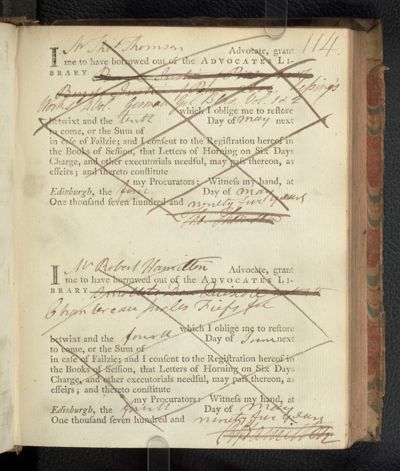 114.
I Mr Thos Thomson Advocate, grant
me to have borrowed out of the ADVOCATES LI-
BRARY
Lessing's
Works
German Vol. 1 & 2
which I oblige me to restore
betwixt and the tenth Day of May next
to come, or the Sum of
in case of Failzie; and I consent to the Registration hereof in
the Books of Session, that Letters of Horning on Six Days
Charge, and other executorials needful, may pass thereon, as
effeirs; and thereto constitute
my Procurators: Witness my hand, at
Edinburgh, the Day of May
One thousand seven hundred and ninety five years
I Mr Robert Hamilton Advocate, grant
me to have borrowed out of the ADVOCATES LI-
BRARY
which I oblige me to restore
betwixt and the fourth Day of June next
to come, or the Sum of
in case of Failzie; and I consent to the Registration hereof in
the Books of Session, that Letters of Horning on Six Days
Charge, and other executorials needful, may pass thereon, as
effeirs; and thereto constitute
my Procurators: Witness my hand, at
Edinburgh, the fourth Day of May
One thousand seven hundred and ninety five years